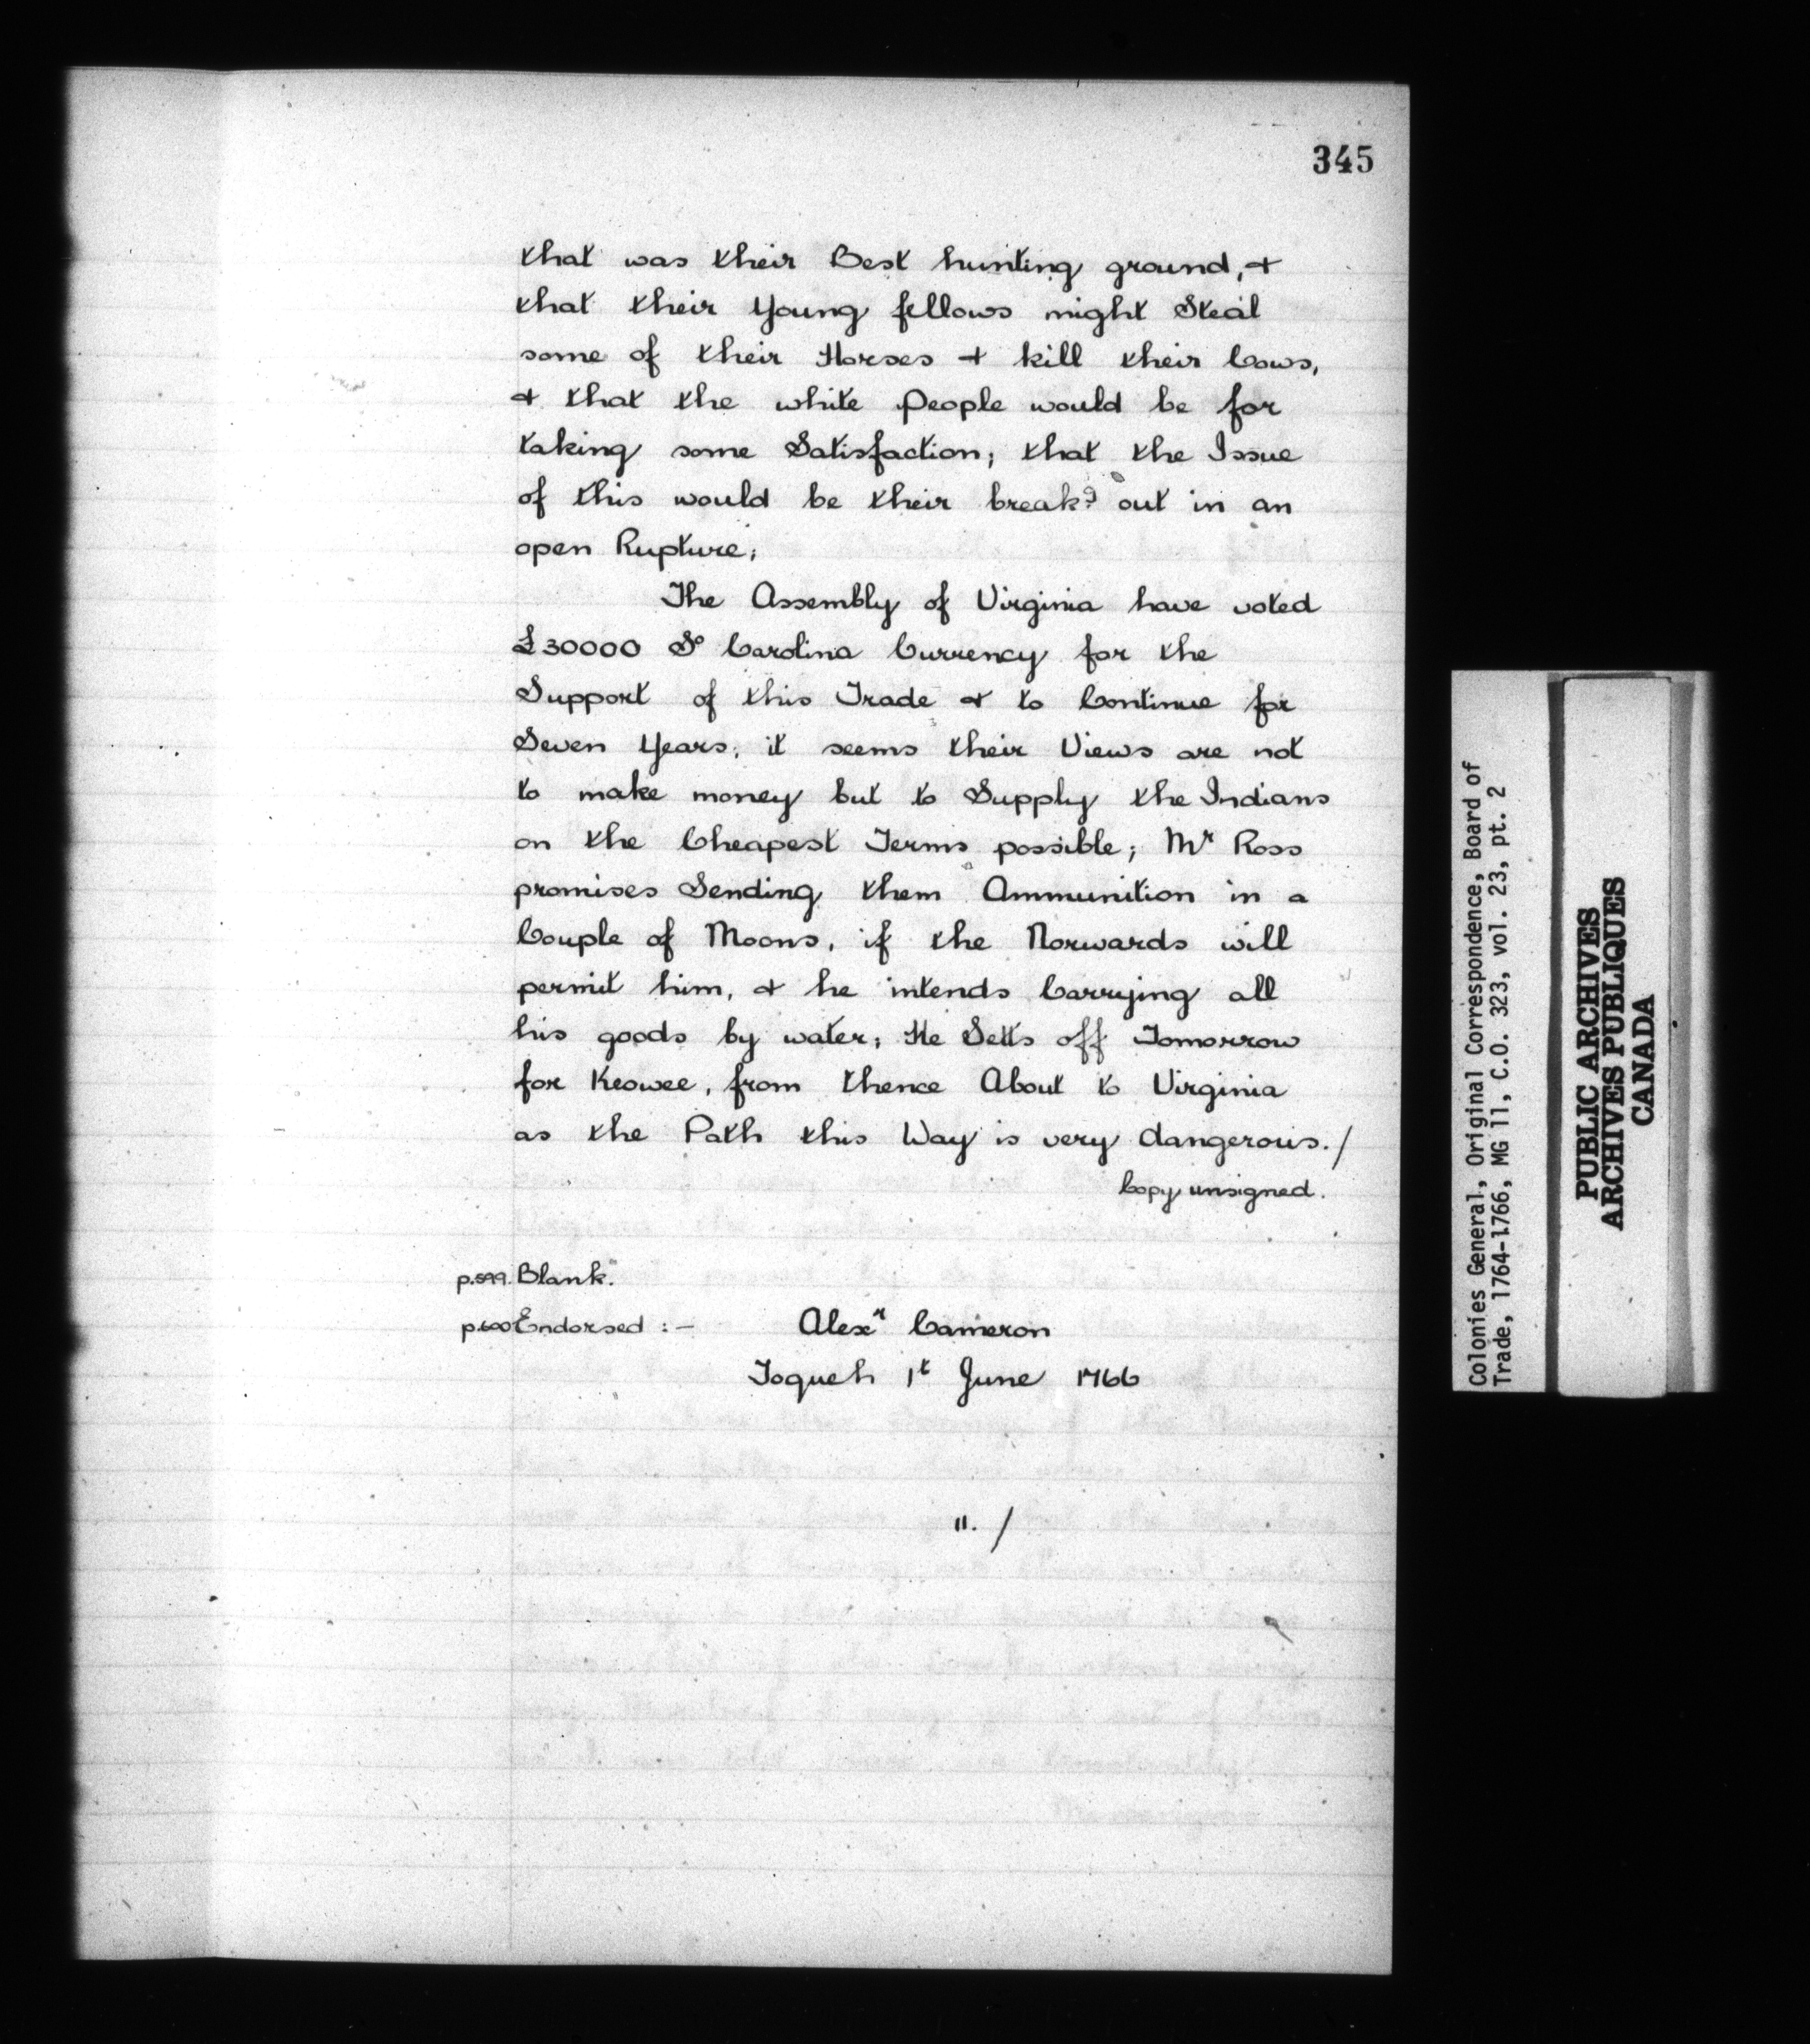 345
that was their Best hunting ground, &
that their Young fellows might Steal
some of their Horses & kill their Cows,
& that the white People would be for
taking some Satisfaction; that the Issue
of this would be their breakg out in an
open Rupture;
The Assembly of Virginia have voted
£30000 So Carolina Currency for the
Support of this Trade & to Continue for
Seven Years; it seems their Views are not
to make money but to Supply the Indians
on the Cheapest Terms possible; Mr Ross
promises Sending them Ammunition in a
Couple of Moons, if the Norwards will
permit him, & he intends Carrying all
his goods by water; He Setts off Tomorrow
for Keowee, from thence About to Virginia
as the Path this Way is very dangerous./
Copy unsigned.
p.599. Blank.
p.600 Endorsed :— Alexr Cameron
Toqueh 1t June 1766
11. /
Colonies General, Original Correspondence, Board of
Trade, 1764-1766, MG 11, C.O. 323, vol. 23, pt. 2
PUBLIC ARCHIVES
ARCHIVES PUBLIQUES
CANADA